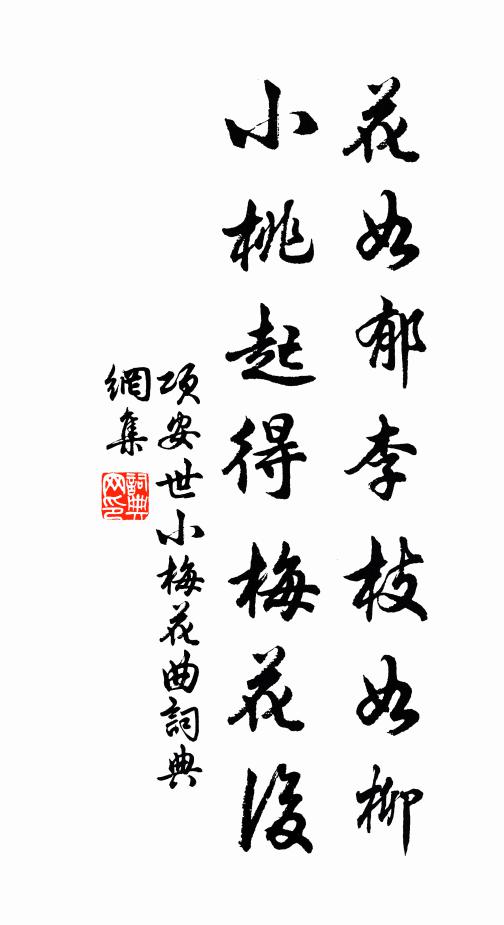 花如郁李枝如柳
小桃起得梅花後
項安世小梅花曲詞典
網集
詞典
网印